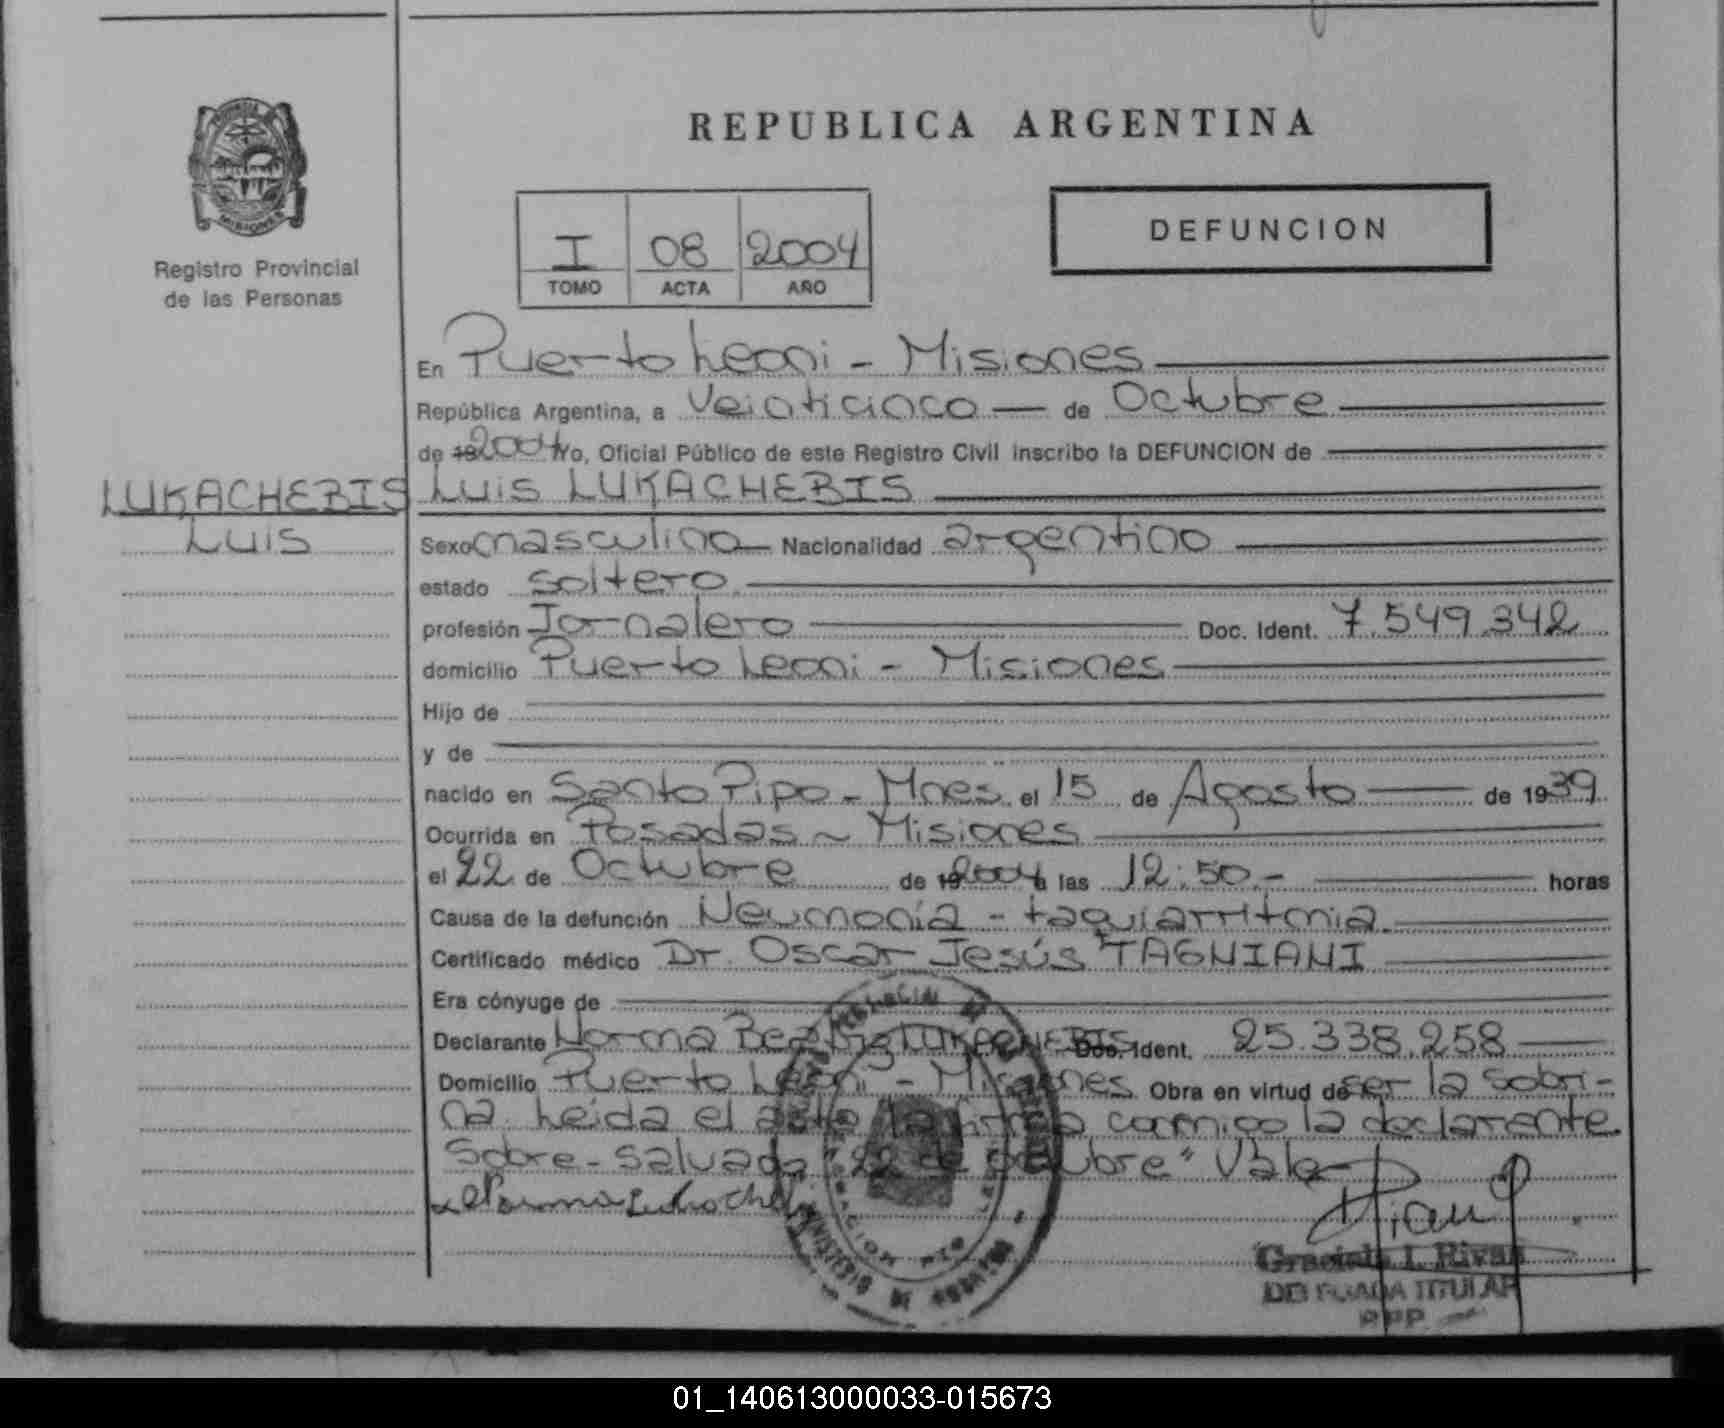 REPUBLICA ARGENTINA
PROVINCIA
MISIONES
Registro Provincial
de las Personas
I 08 2004
TOMO ACTA AÑO
DEFUNCION
En Puerto Leoni - Misiones
República Argentina, a Veinticinco de Octubre
de 19 2004 Yo, Oficial Público de este Registro Civil inscribo la DEFUNCION de
LUKACHEBIS Luis LUKACHEBIS
Luis
Sexo masculino Nacionalidad argentino
estado soltero.
profesión Jornalero Doc. Ident. 7.549.342
domicilio Puerto Leoni - Misiones
Hijo de
y de
nacido en Santo Pipo - Mnes. el 15 de Agosto de 1939
Ocurrida en Posadas ~ Misiones
el 22 de Octubre de 19 2004 a las 12:50.- horas
Causa de la defunción Neumonía - taquiarritmia.
Certificado médico Dr. Oscar Jesús TAGNIANI
Era cónyuge de
Declarante Norma Beatriz LUKACHEBIS Doc. Ident. 25.338.258
Domicilio Puerto Leoni - Misiones Obra en virtud de ser la sobri-
na. Leída el acta la firma conmigo la declarante
Sobre-salvado "22 de octubre" Vale
Graciela I. Rivas
DELEGADA TITULAR
RPP
01_140613000033-015673